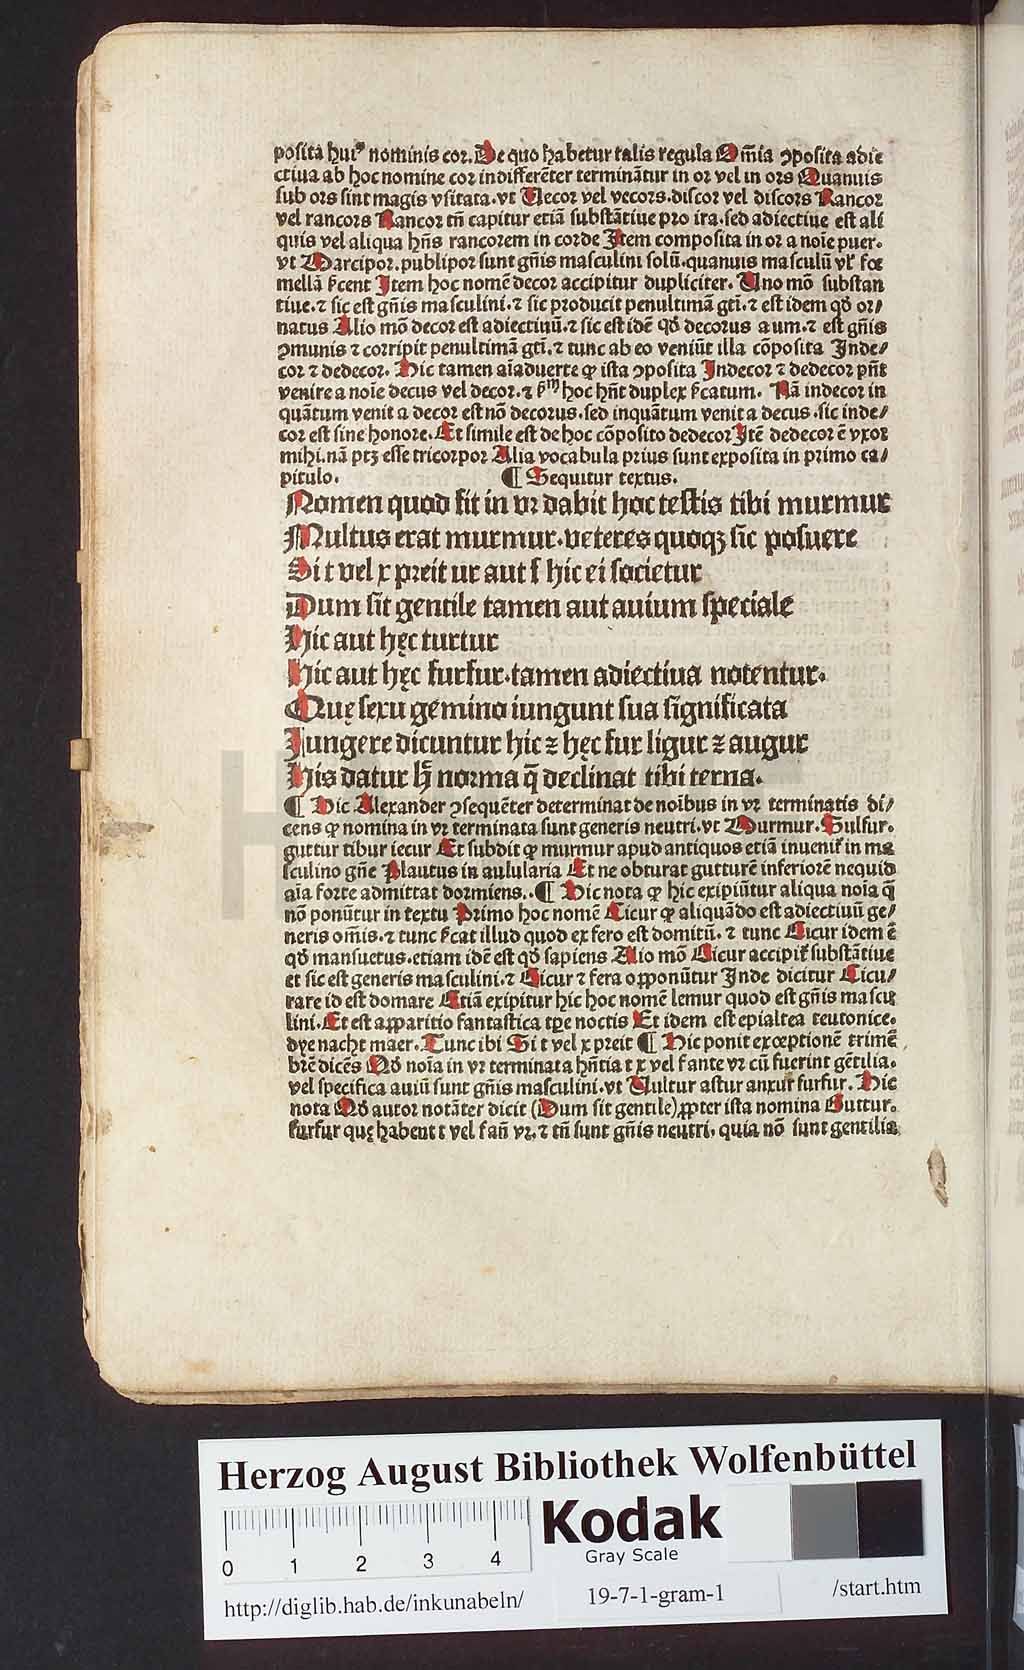 posita huiꝰ nominis cor. De quo habetur talis regula Om̄ia ꝯposita adie
ctiua ab hoc nomine cor indifferēter termināntur in or vel in ors Quanuis
sub ors sint magis vsitata. vt Uecor vel vecors. discor vel discors Rancor
vel rancors Rancor tn̄ capitur etiā substātiue pro ira. sed adiectiue est ali
quis vel aliqua hn̄s rancorem in corde Item composita in or a noīe puer.
vt Marcipor. publipor sunt gn̄is masculini solū. quanuis masculū vl' foe
mellā s͛cent Item hoc nomē decor accipitur dupliciter. Uno mō substan
tiue. ⁊ sic est gn̄is masculini. ⁊ sic producit penultimā gt̄i. ⁊ est idem qd̄ or/
natus Alio mō decor est adiectiuū. ⁊ sic est idē qd̄ decorus a um. ⁊ est gn̄is
ꝯmunis ⁊ corripit penultimā gt̄i. ⁊ tunc ab eo veniūt illa cōposita Inde/
cor ⁊ dedecor. Hic tamen aīaduerte ꝙ ista ꝯposita Indecor ⁊ dedecor pn̄t
venire a noīe decus vel decor. ⁊ hoc hn̄t duplex s͛catum. Nā indecor in
quātum venit a decor est nō decorus. sed inquātum venit a decus. sic inde/
cor est sine honore. Et simile est de hoc cōposito dedecor Itē dedecor ē vxor
mihi. nā ptꝫ esse tricorpor Alia vocabula prius sunt exposita in primo ca/
pitulo. ¶ Sequitur textus.
Nomen quod fit in vr dabit hoc testis tibi murmur
Multus erat murmur. veteres quoqꝫ sic posuere
Si t vel x preit ur aut f hic ei societur
Dum sit gentile tamen aut auium speciale
Hic aut hęc turtur
Hic aut hęc furfur. tamen adiectiua notentur.
Quę sexu gemino iungunt sua significata
Iungere dicuntur hic ⁊ hęc fur ligur ⁊ augur
His datur norma q̄ declinat tibi terna.
¶ Hic Alexander ꝯsequēter determinat de noībus in vr terminatis di/
cens ꝙ nomina in vr terminata sunt generis neutri. vt Murmur. Sulfur.
guttur tibur iecur Et subdit ꝙ murmur apud antiquos etiā inuenit͛ in ma
sculino gn̄e Plautus in aulularia Et ne obturat gutturē inferiorē nequid
aīa forte admittat dormiens.. ¶ Hic nota ꝙ hic excipiūtur aliqua noīa q̄
nō ponūtur in textu Primo hoc nomē Cicur ꝙ aliquādo est adiectiuū ge/
neris om̄is. ⁊ tunc s͛cat illud quod ex fero est domitū. ⁊ tunc Cicur idem ē
qd̄ mansuetus. etiam idē est qd̄ sapiens Alio mō Cicur accipit͛ substātiue
et sic est generis masculini. ⁊ Cicur ⁊ fera opponūtur Inde dicitur Cicu/
rare id est domare Etiā excipitur hic hoc nomē lemur quod est gn̄is mascu
lini. Et est apparitio fantastica tpe noctis Et idem est epialtea teutonice.
dye nacht maer. Tunc ibi Si t vel x preit ¶ Hic ponit exceptionē trimē
brē dicēs Qd̄ noīa in vr terminata hn̄tia t x vel f ante vr cū fuerint gētilia.
vel specifica auiū sunt gn̄is masculini. vt Uultur astur anxur furfur. Hic
nota Qd̄ autor notāter dicit (Dum sit gentile) ꝓpter ista nomina Guttur.
furfur quę habent t vel f an̄ vr. ⁊ tn̄ sunt gn̄is neutri, quia nō sunt gentilia
Herzog August Bibliothek Wolfenbüttel
Kodak
Gray Scale
0 1 2 3 4
http://diglib.hab.de/inkunabeln/ 19-7-1-gram-1 /start.htm
HAB